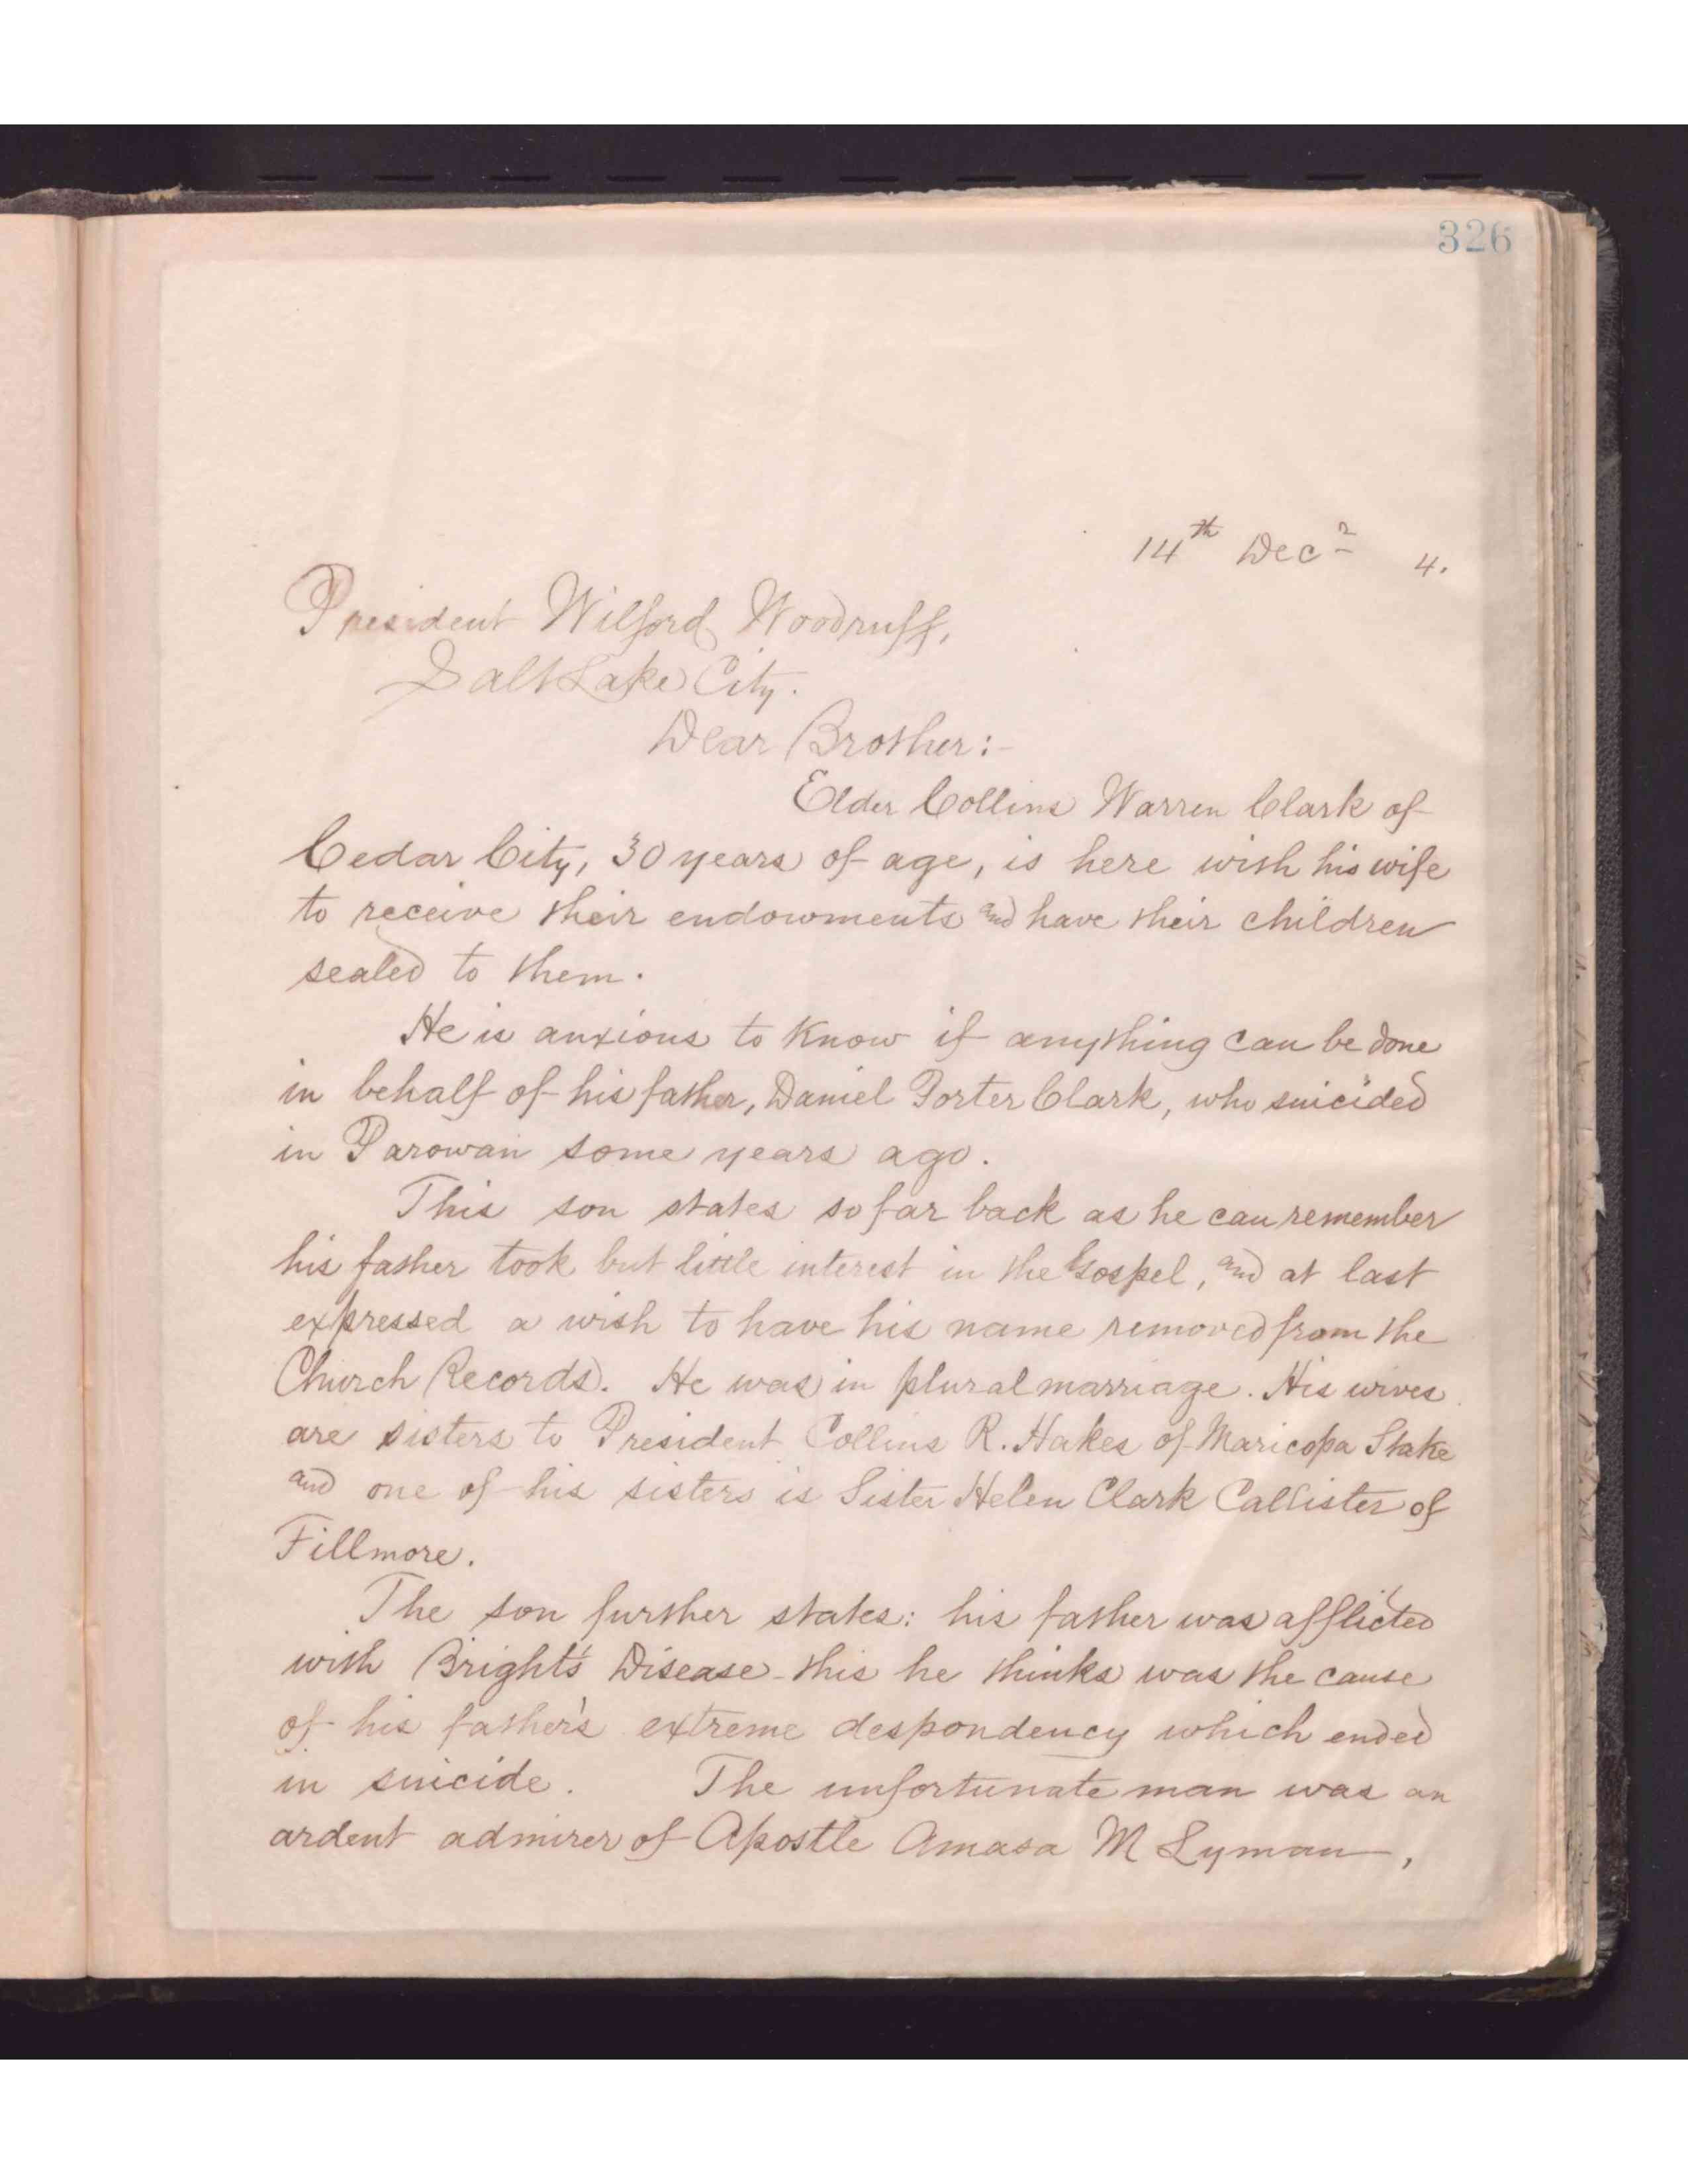 326
14th Decr 4.
President Wilford Woodruff,
Salt Lake City.
Dear Brother:-
Elder Collins Warren Clark of
Cedar City, 30 years of age, is here with his wife
to receive their endowments and have their children
sealed to them.
He is anxious to know if anything can be done
in behalf of his father, Daniel Porter Clark, who suicided
in Parowan some years ago.
This son states so far back as he can remember
his father took but little interest in the Gospel, and at last
expressed a wish to have his name removed from the
Church Records. He was in plural marriage. His wives
are sisters to President Collins R. Hakes of Maricopa Stake
and one of his sisters is Sister Helen Clark Callister of
Fillmore.
The son further states: his father was afflicted
with Bright's Disease - this he thinks was the cause
of his father's extreme despondency which ended
in suicide. The unfortunate man was an
ardent admirer of Apostle Amasa M Lyman,